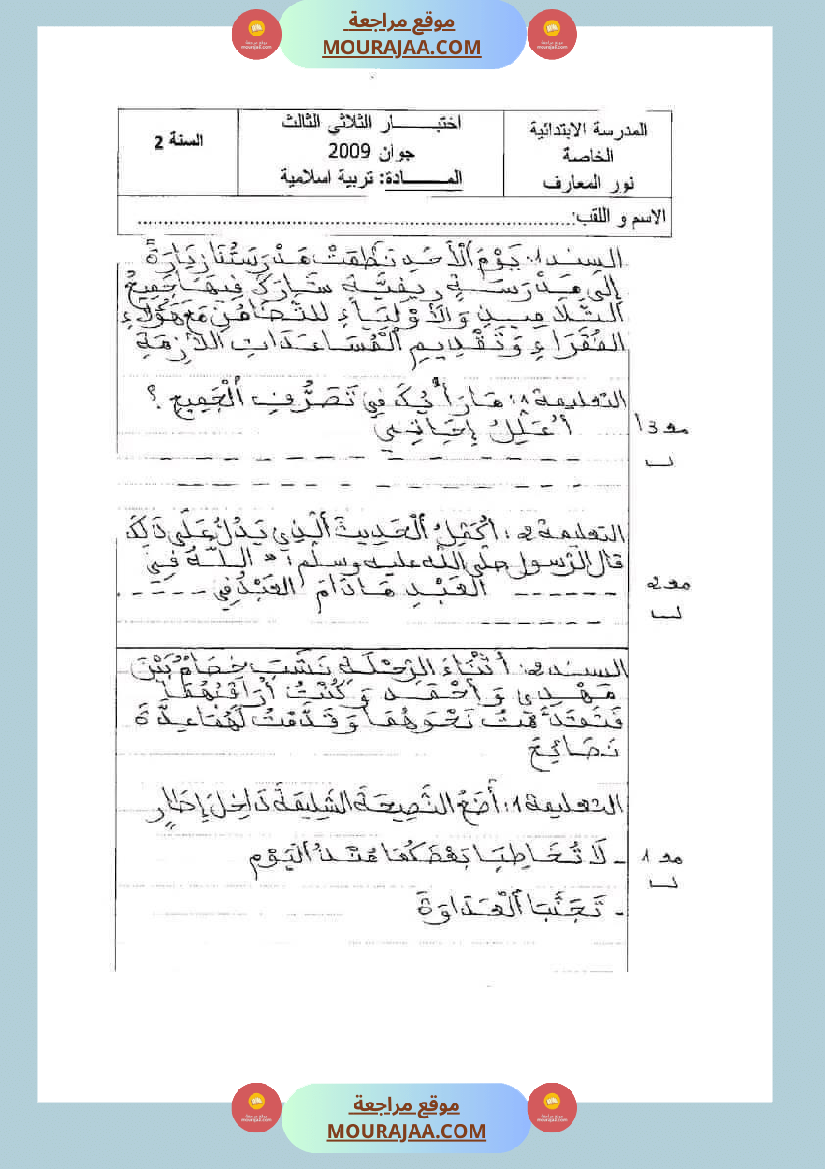 موقع مراجعة
MOURAJAA.COM
المدرسة الابتدائية
الخاصة
نور المعارف
اختبــــــار الثلاثي الثالث
جوان 2009
المــــــادة: تربية اسلامية
السنة 2
الاسم و اللقب:
السند 1: يَوْمَ الْأَحَدِ نَظَّمَتْ مَدْرَسَتُنَا زِيَارَةً
إِلَى مَدْرَسَةٍ رِيفِيَّةٍ شَارَكَ فِيهَا جَمِيعُ
التَّلَامِيذِ وَالْأَوْلِيَاءِ لِلتَّضَامُنِ مَعَ هَؤُلَاءِ
الفُقَرَاءِ وَتَقْدِيمِ الْمُسَاعَدَاتِ اللَّازِمَةِ
التعليمة 1: مَا رَأْيُكَ فِي تَصَرُّفِ الْجَمِيعِ ؟
أُعَلِّلُ إِجَابَتِي
مع 3 أ
التعليمة 2: أُكْمِلُ الْحَدِيثَ الَّذِي يَدُلُّ عَلَى ذَلِكَ
قال الرّسول صلّى الله عليه وسلّم: " اللَّهُ فِي
العَبْدِ مَا دَامَ العَبْدُ فِي
مع 2
السند 2: أَثْنَاءَ الرِّحْلَةِ نَشَبَ خِصَامٌ بَيْنَ
مَهْدِي وَأَحْمَد وَكُنْتُ أُرَافِقُهُمَا
فَتَقَدَّمْتُ نَحْوَهُمَا وَقَدَّمْتُ لَهُمَا عِدَّةَ
نَصَائِحَ
التعليمة 1: أَضَعُ النَّصِيحَةَ السَّلِيمَةَ دَاخِلَ إِطَارٍ
- لَا تُخَاطِبَا بَعْضَكُمَا مُنْذُ الْيَوْمِ
مع 1
- تَجَنَّبَا الْعَدَاوَةَ
موقع مراجعة
MOURAJAA.COM